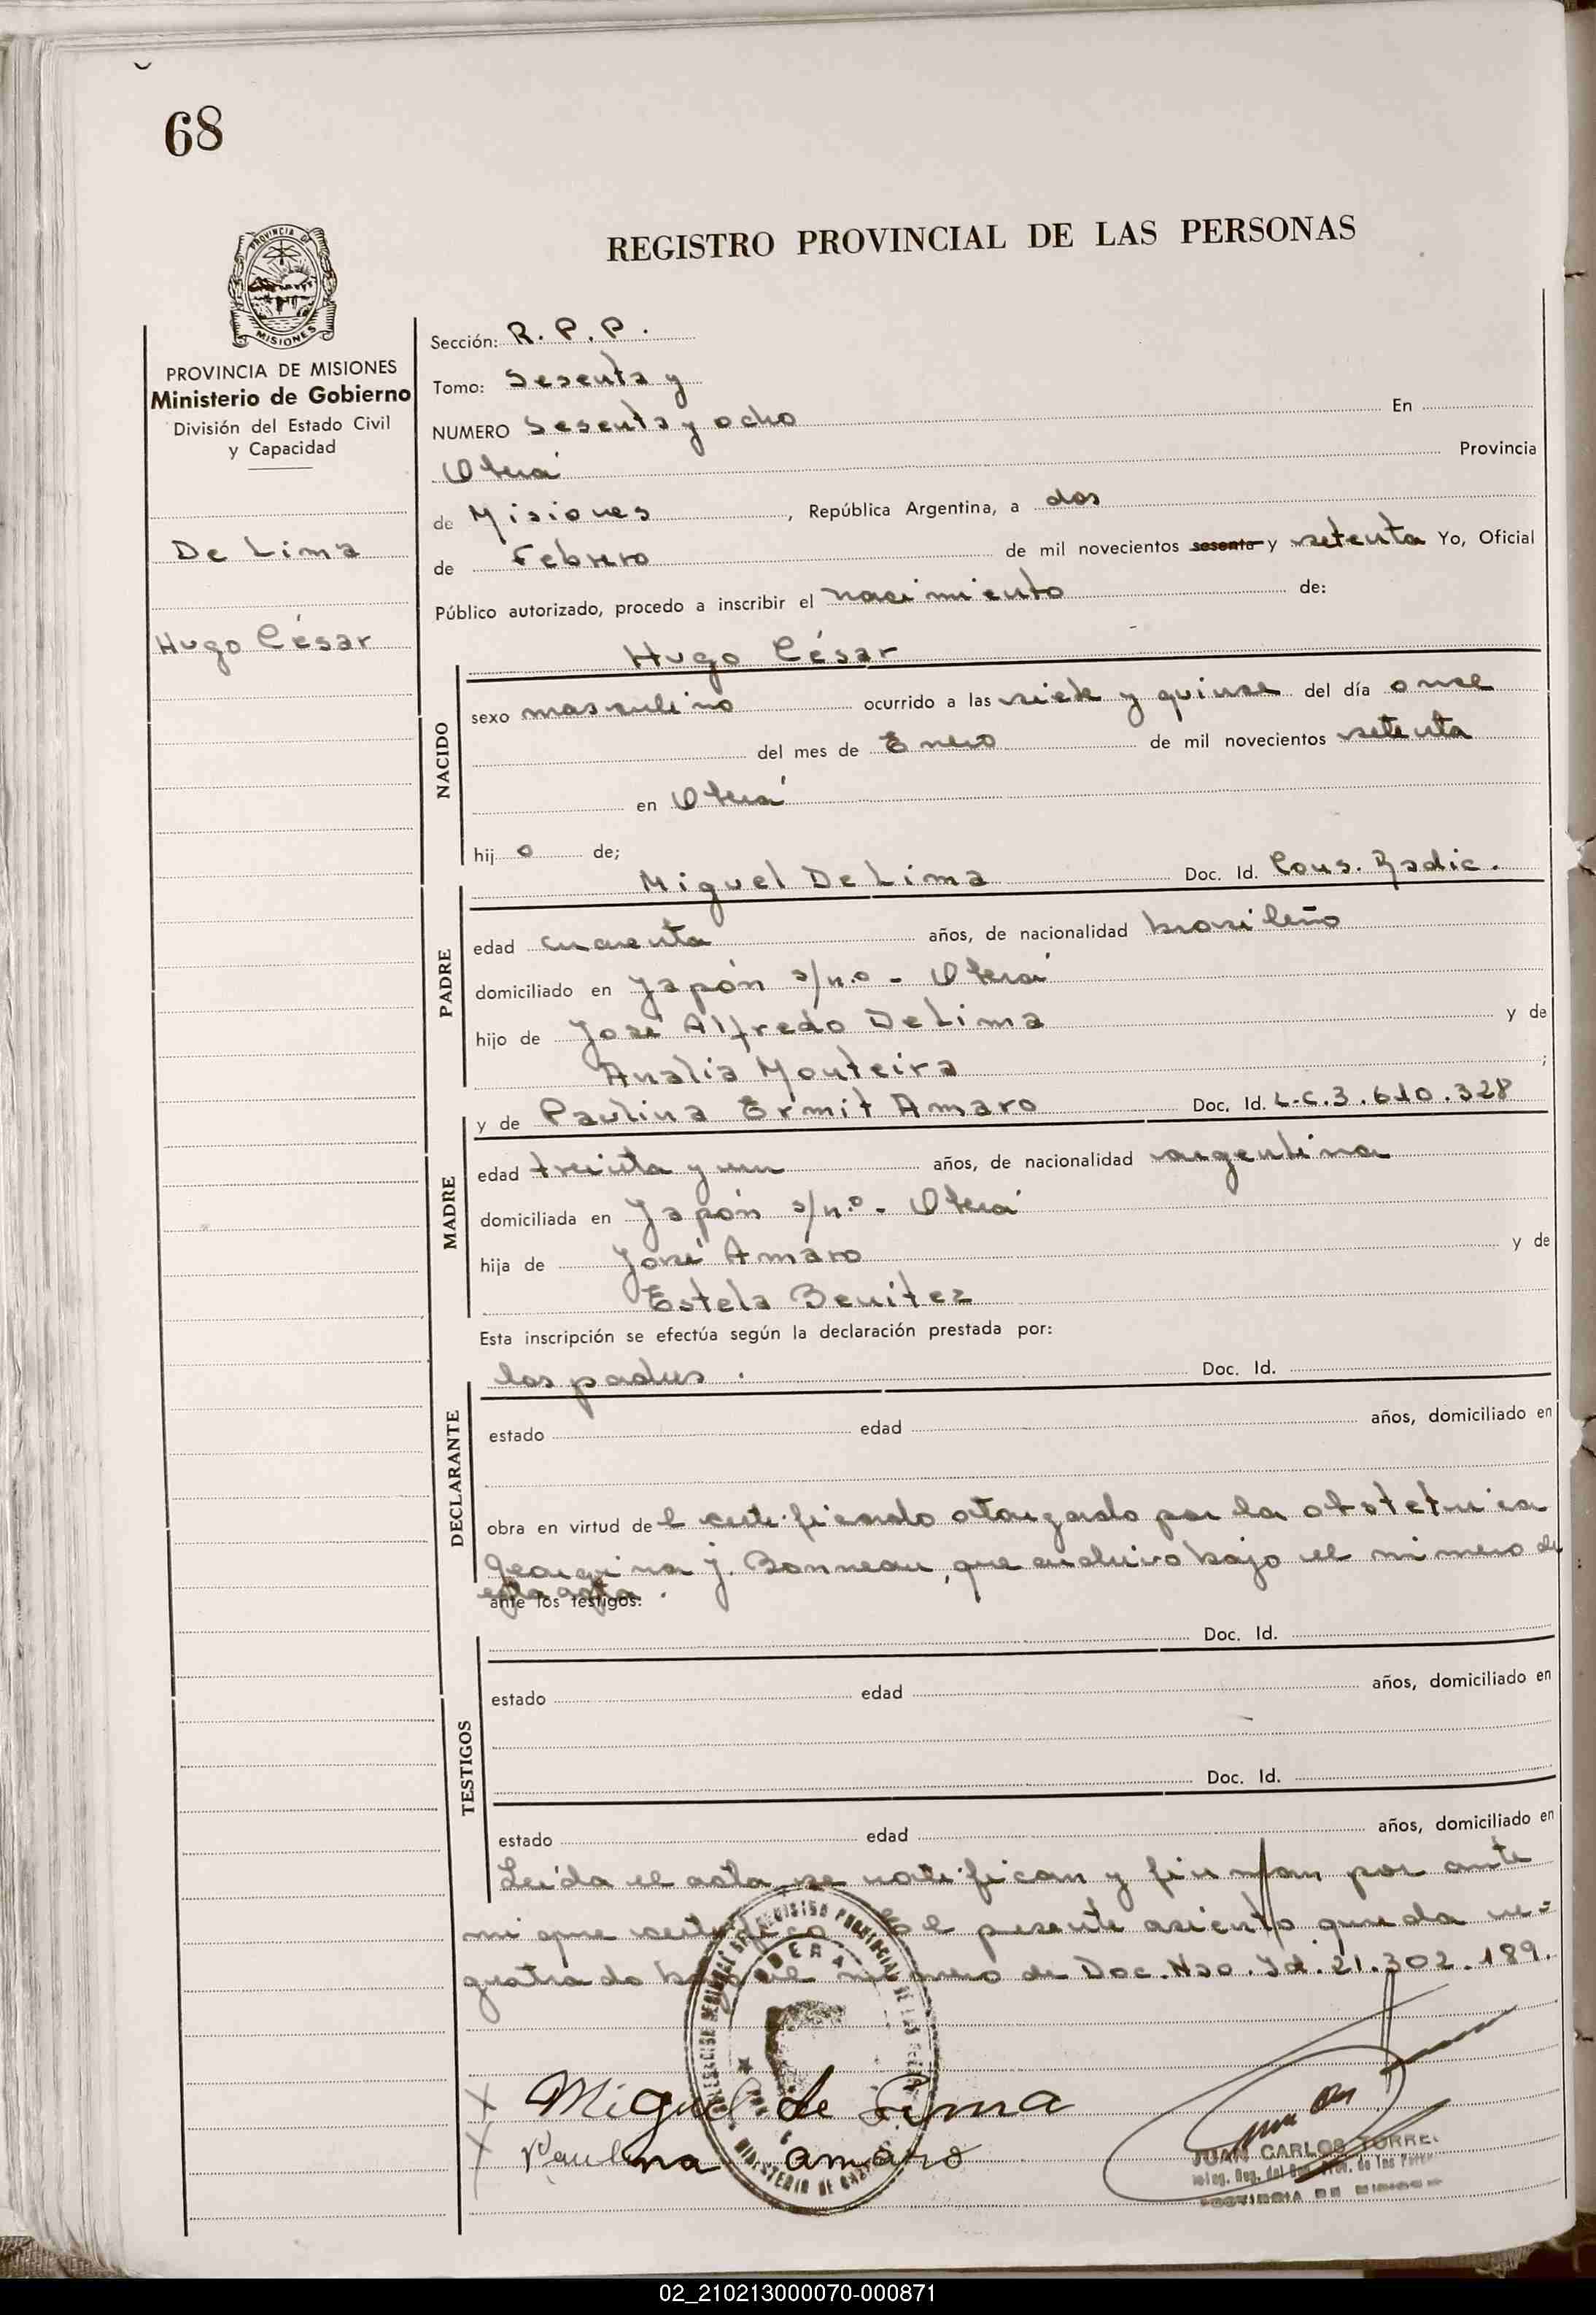 68
REGISTRO PROVINCIAL DE LAS PERSONAS
PROVINCIA DE MISIONES
Ministerio de Gobierno
División del Estado Civil
y Capacidad
De Lima
Hugo César
Sección: R. P. P.
Tomo: Sesenta y
NUMERO Sesenta y ocho En
Oberá Provincia
de Misiones, República Argentina, a dos
de Febrero de mil novecientos sesenta y setenta Yo, Oficial
Público autorizado, procedo a inscribir el nacimiento de:
Hugo César
NACIDO
sexo masculino ocurrido a las siete y quinse del día onse
del mes de Enero de mil novecientos setenta
en Oberá
hij o de;
Miguel De Lima Doc. Id. Cons. Radic.
PADRE
edad cuarenta años, de nacionalidad brasileño
domiciliado en Japón s/n.o - Oberá
hijo de José Alfredo De Lima y de
Analia Monteira ;
y de Paulina Ermit Amaro Doc. Id. L.C. 3.610.328
MADRE
edad treinta y un años, de nacionalidad argentina
domiciliada en Japón s/n.o - Oberá
hija de José Amaro y de
Estela Benitez
Esta inscripción se efectúa según la declaración prestada por:
los padres. Doc. Id.
DECLARANTE
estado edad años, domiciliado en
obra en virtud de l certificado otorgado por la obstetrica
Georgina J. Bonneau, que archivo bajo el número de
esta acta.
ante los testigos:
Doc. Id.
TESTIGOS
estado edad años, domiciliado en
Doc. Id.
estado edad años, domiciliado en
Leída el acta se notifican y firman por ante
mi que certifico El presente asiento queda re=
gistrado bajo el número de Doc. Nao. Id. 21.302.189.
Miguel de Lima
Paulina amaro
JUAN CARLOS TORRE
PROVINCIA DE MISIONES
02_210213000070-000871